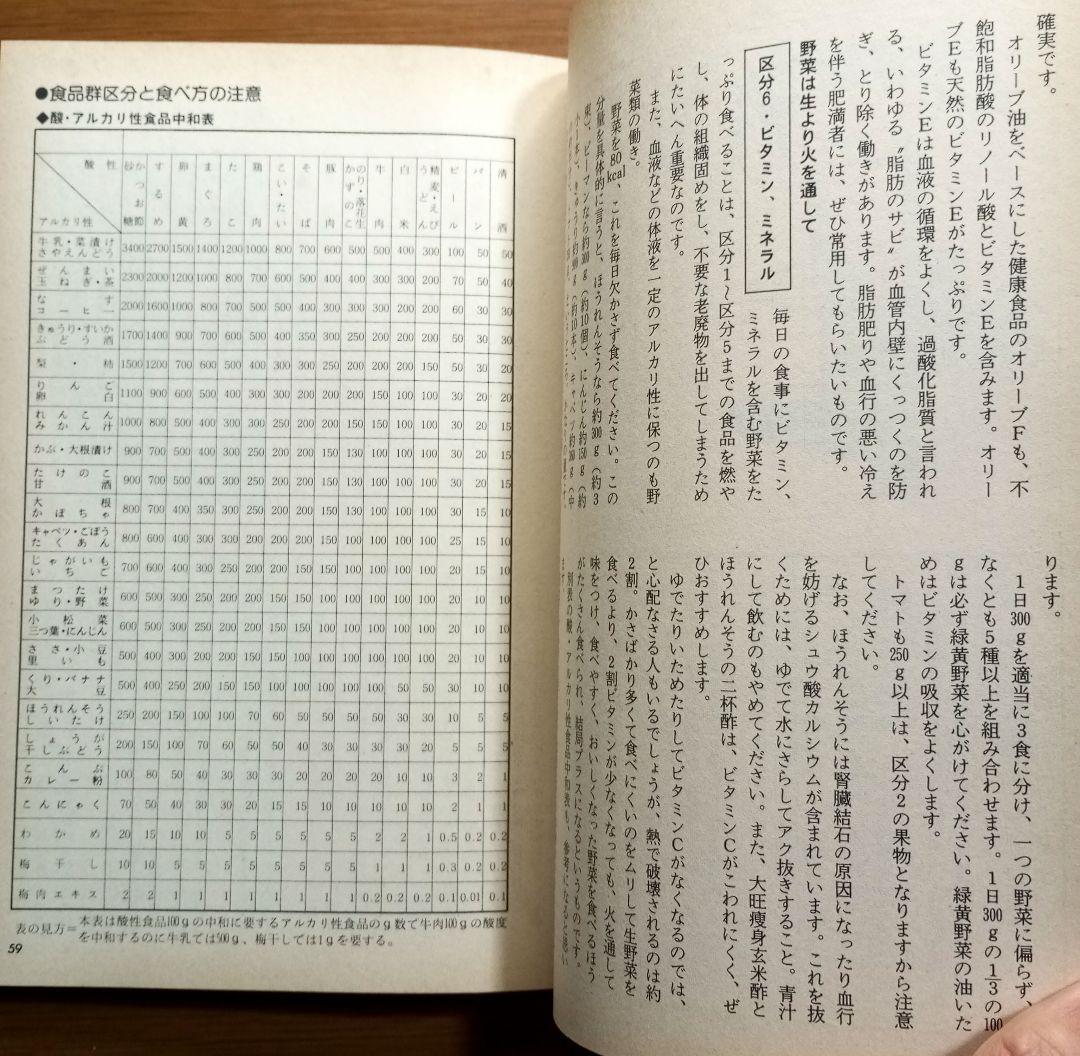 確実です。
オリーブ油をベースにした健康食品のオリーブFも、不
飽和脂肪酸のリノール酸とビタミンEを含みます。オリー
ブEも天然のビタミンEがたっぷりです。
ビタミンEは血液の循環をよくし、過酸化脂質と言われ
る、いわゆる〝脂肪のサビ〟が血管内壁にくっつくのを防
ぎ、とり除く働きがあります。脂肪肥りや血行の悪い冷え
を伴う肥満者には、ぜひ常用してもらいたいものです。
野菜は生より火を通して
区分6・ビタミン、ミネラル
毎日の食事にビタミン、
ミネラルを含む野菜をた
っぷり食べることは、区分1〜区分5までの食品を燃や
し、体の組織固めをし、不要な老廃物を出してしまうため
にたいへん重要なのです。
また、血液などの体液を一定のアルカリ性に保つのも野
菜類の働き。
野菜を80kcal、これを毎日欠かさず食べてください。この
分量を具体的に言うと、ほうれんそうなら約300g(約3
束)、ピーマンなら約300g(約10個)、にんじん約150g(約
ります。
1日300gを適当に3食に分け、一つの野菜に偏らず、
なくとも5種以上を組み合わせます。1日300gの1/3の100
gは必ず緑黄野菜を心がけてください。緑黄野菜の油いた
めはビタミンの吸収をよくします。
トマトも250g以上は、区分2の果物となりますから注意
してください。
なお、ほうれんそうには腎臓結石の原因になったり血行
を妨げるシュウ酸カルシウムが含まれています。これを抜
くためには、ゆでて水にさらしてアク抜きすること。青汁
にして飲むのもやめてください。また、大旺痩身玄米酢と
ほうれんそうの二杯酢は、ビタミンCがこわれにくく、ぜ
ひおすすめします。
ゆでたりいためたりしてビタミンCがなくなるのでは、
と心配なさる人もいるでしょうが、熱で破壊されるのは約
2割。かさばかり多くて食べにくいのをムリして生野菜を
食べるより、2割ビタミンが少なくなっても、火を通して
味をつけ、食べやすく、おいしくなった野菜を食べるほう
がたくさん食べられ、結局プラスになるというものです。
別表の酸・アルカリ性食品中和表も、参考になると思い
ます。
●食品群区分と食べ方の注意
◆酸・アルカリ性食品中和表
酸性 砂糖・かつお節 するめ 卵黄 まぐろ たこ 鶏肉 こい・たい そば 豚肉 のり・落花生かずのこ 牛肉 白米 精麦・えびうどん ビール パン 清酒
アルカリ性
牛乳・菜漬け さやえんどう 3400 2700 1500 1400 1200 1000 800 700 600 500 500 400 300 100 50 50
ぜんまい 玉ねぎ・茶 2300 2000 1200 1000 800 700 600 500 400 400 300 300 200 70 50 40
なす コーヒー 2000 1600 1000 800 700 500 500 400 300 300 300 200 200 60 30 30
きゅうり・すいか ぶどう酒 1700 1400 900 700 600 500 400 350 300 300 200 200 200 50 30 30
梨・柿 1500 1200 700 600 500 400 300 300 250 200 200 200 150 50 30 20
りんご 卵白 1100 900 600 500 400 300 300 200 200 200 150 100 100 30 20 20
れんこん みかん汁 1000 800 500 400 300 300 200 200 200 150 150 100 100 30 20 15
かぶ・大根漬け 900 700 500 400 300 250 200 200 150 130 100 100 100 30 20 15
たけのこ 甘酒 900 700 500 400 300 250 200 200 150 130 100 100 100 30 20 15
大根 かぼちゃ 800 700 400 350 300 250 200 200 150 100 100 100 100 30 15 10
キャベツ・ごぼう たくあん 800 600 400 300 300 200 200 200 150 100 100 100 100 25 15 10
じゃがいも いちご 700 600 400 300 300 200 200 150 100 100 100 100 100 20 15 10
まつたけ ゆり・野菜 600 500 300 250 200 200 150 150 100 100 100 100 100 20 10 10
小松菜 三つ葉・にんじん 600 500 300 250 200 200 150 100 100 100 100 100 100 20 10 10
ささ・小豆 里いも 500 400 300 200 200 150 150 100 100 100 100 100 100 20 10 10
くり・バナナ 大豆 500 400 250 200 150 150 100 100 100 100 100 50 50 30 10 10
ほうれんそう しいたけ 250 200 150 100 100 70 60 50 50 50 50 30 30 10 5 5
しょうが 干しぶどう 200 150 100 70 60 50 50 40 30 30 30 30 20 5 5 5
こんぶ カレー粉 100 80 50 40 30 30 30 20 20 20 20 10 10 3 2 1
こんにゃく 70 50 40 30 30 20 15 15 10 10 10 10 10 2 1 1
わかめ 20 15 10 10 5 5 5 5 5 5 2 2 1 0.5 0.2 0.2
梅干し 10 10 5 5 5 5 5 5 5 5 1 1 1 0.3 0.2 0.2
梅肉エキス 2 2 1 1 1 1 1 1 1 0.2 0.2 0.2 0.1 0.1 0.01 0.1
表の見方=本表は酸性食品100gの中和に要するアルカリ性食品のg数で牛肉100gの酸度
を中和するのに牛乳では500g、梅干しでは1gを要する。
59